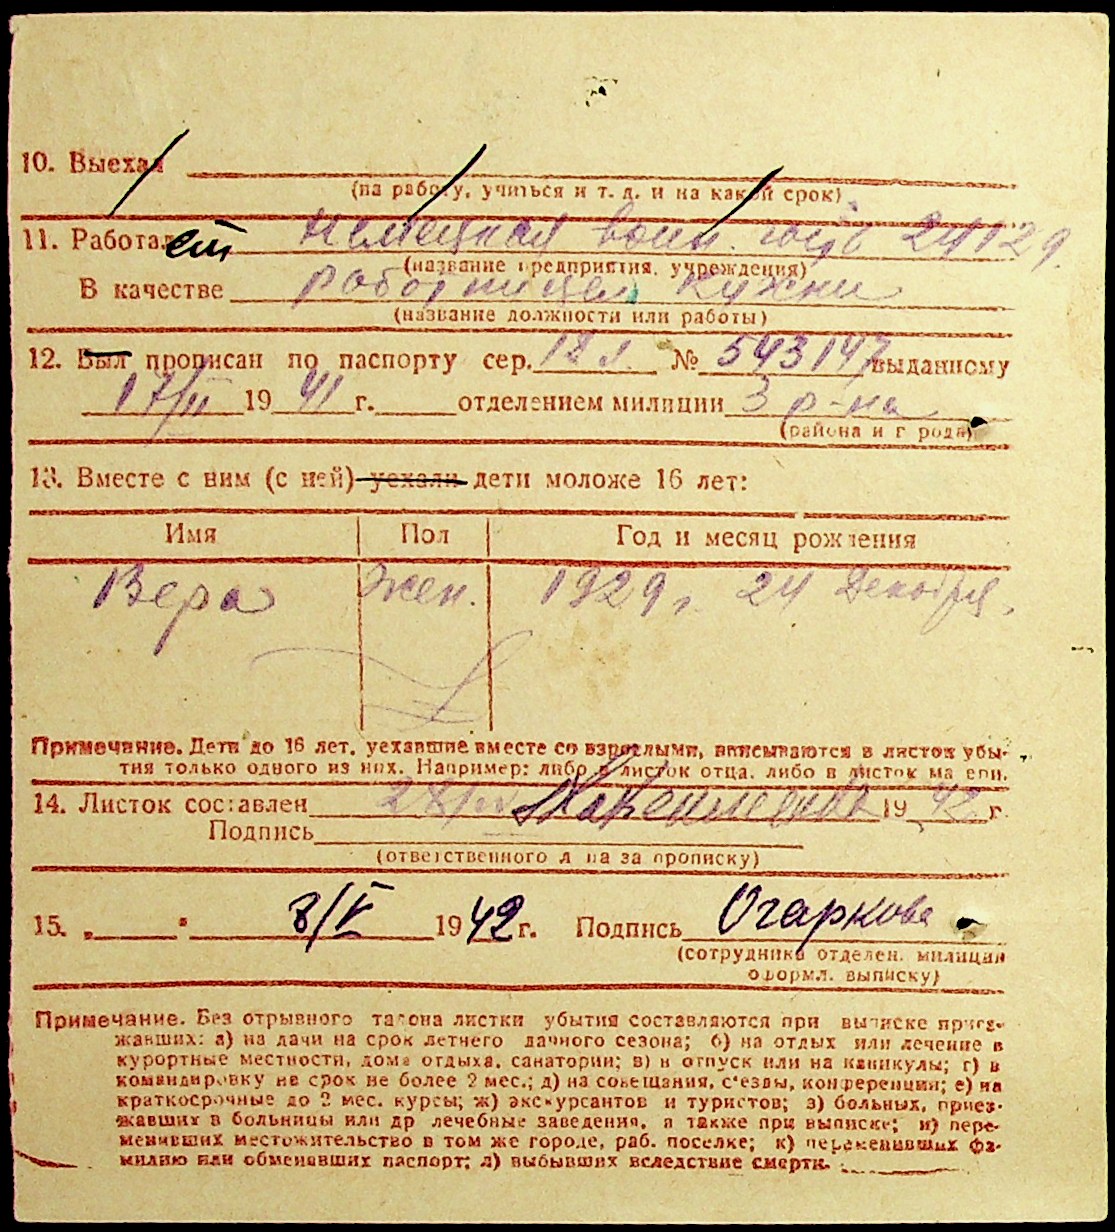 10. Выехал
(на работу, учиться и т. д. и на какой срок)
11. Работает Немецкая воин. 24129
(название предприятия, учреждения)
В качестве работницей кухни
(название должности или работы)
12. Был прописан по паспорту сер. № 543147 выданному
17/II 1941 г. отделением милиции 3 р-на
(района и г рода)
13. Вместе с ним (с ней) уехали дети моложе 16 лет:
Имя Пол Год и месяц рождения
Вера Жен. 1929 г. 24 Декабря.
Примечание. Дети до 16 лет, уехавшие вместе со взрослыми, вписываются в листок убы-
тия только одного из них. Например: либо в листок отца, либо в листок матери.
14. Листок составлен 28/ 1942 г.
Подпись
(ответственного лица за прописку)
15. „ " 8/V 1942 г. Подпись Огаркова
(сотрудника отделен. милиции
оформл. выписку)
Примечание. Без отрывного талона листки убытия составляются при выписке приез-
жавших: а) на дачи на срок летнего дачного сезона; б) на отдых или лечение в
курортные местности, дома отдыха, санатории; в) в отпуск или на каникулы; г) в
командировку не срок не более 2 мес.; д) на совещания, с'езды, конференции; е) на
краткосрочные до 2 мес. курсы; ж) экскурсантов и туристов; з) больных, приез-
жавших в больницы или др лечебные заведения, а также при выписке; и) пере-
менивших местожительство в том же городе, раб. поселке; к) переменивших фа-
милию или обменявших паспорт; л) выбывших вследствие смерти.